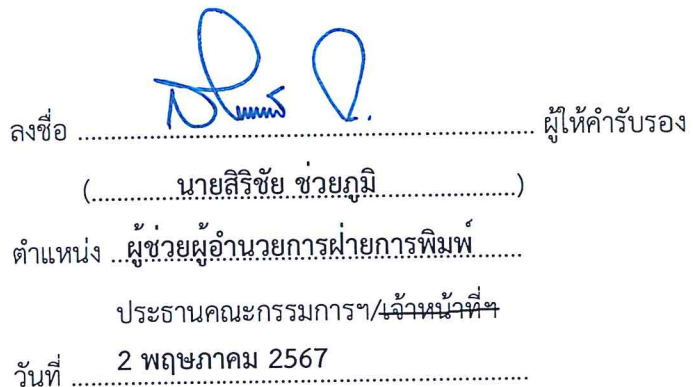 ลงชื่อ ................................................................ ผู้ให้คำรับรอง
(............นายสิริชัย ช่วยภูมิ............)
ตำแหน่ง ...ผู้ช่วยผู้อำนวยการฝ่ายการพิมพ์......
ประธานคณะกรรมการฯ/เจ้าหน้าที่ฯ
วันที่ ....2 พฤษภาคม 2567....................